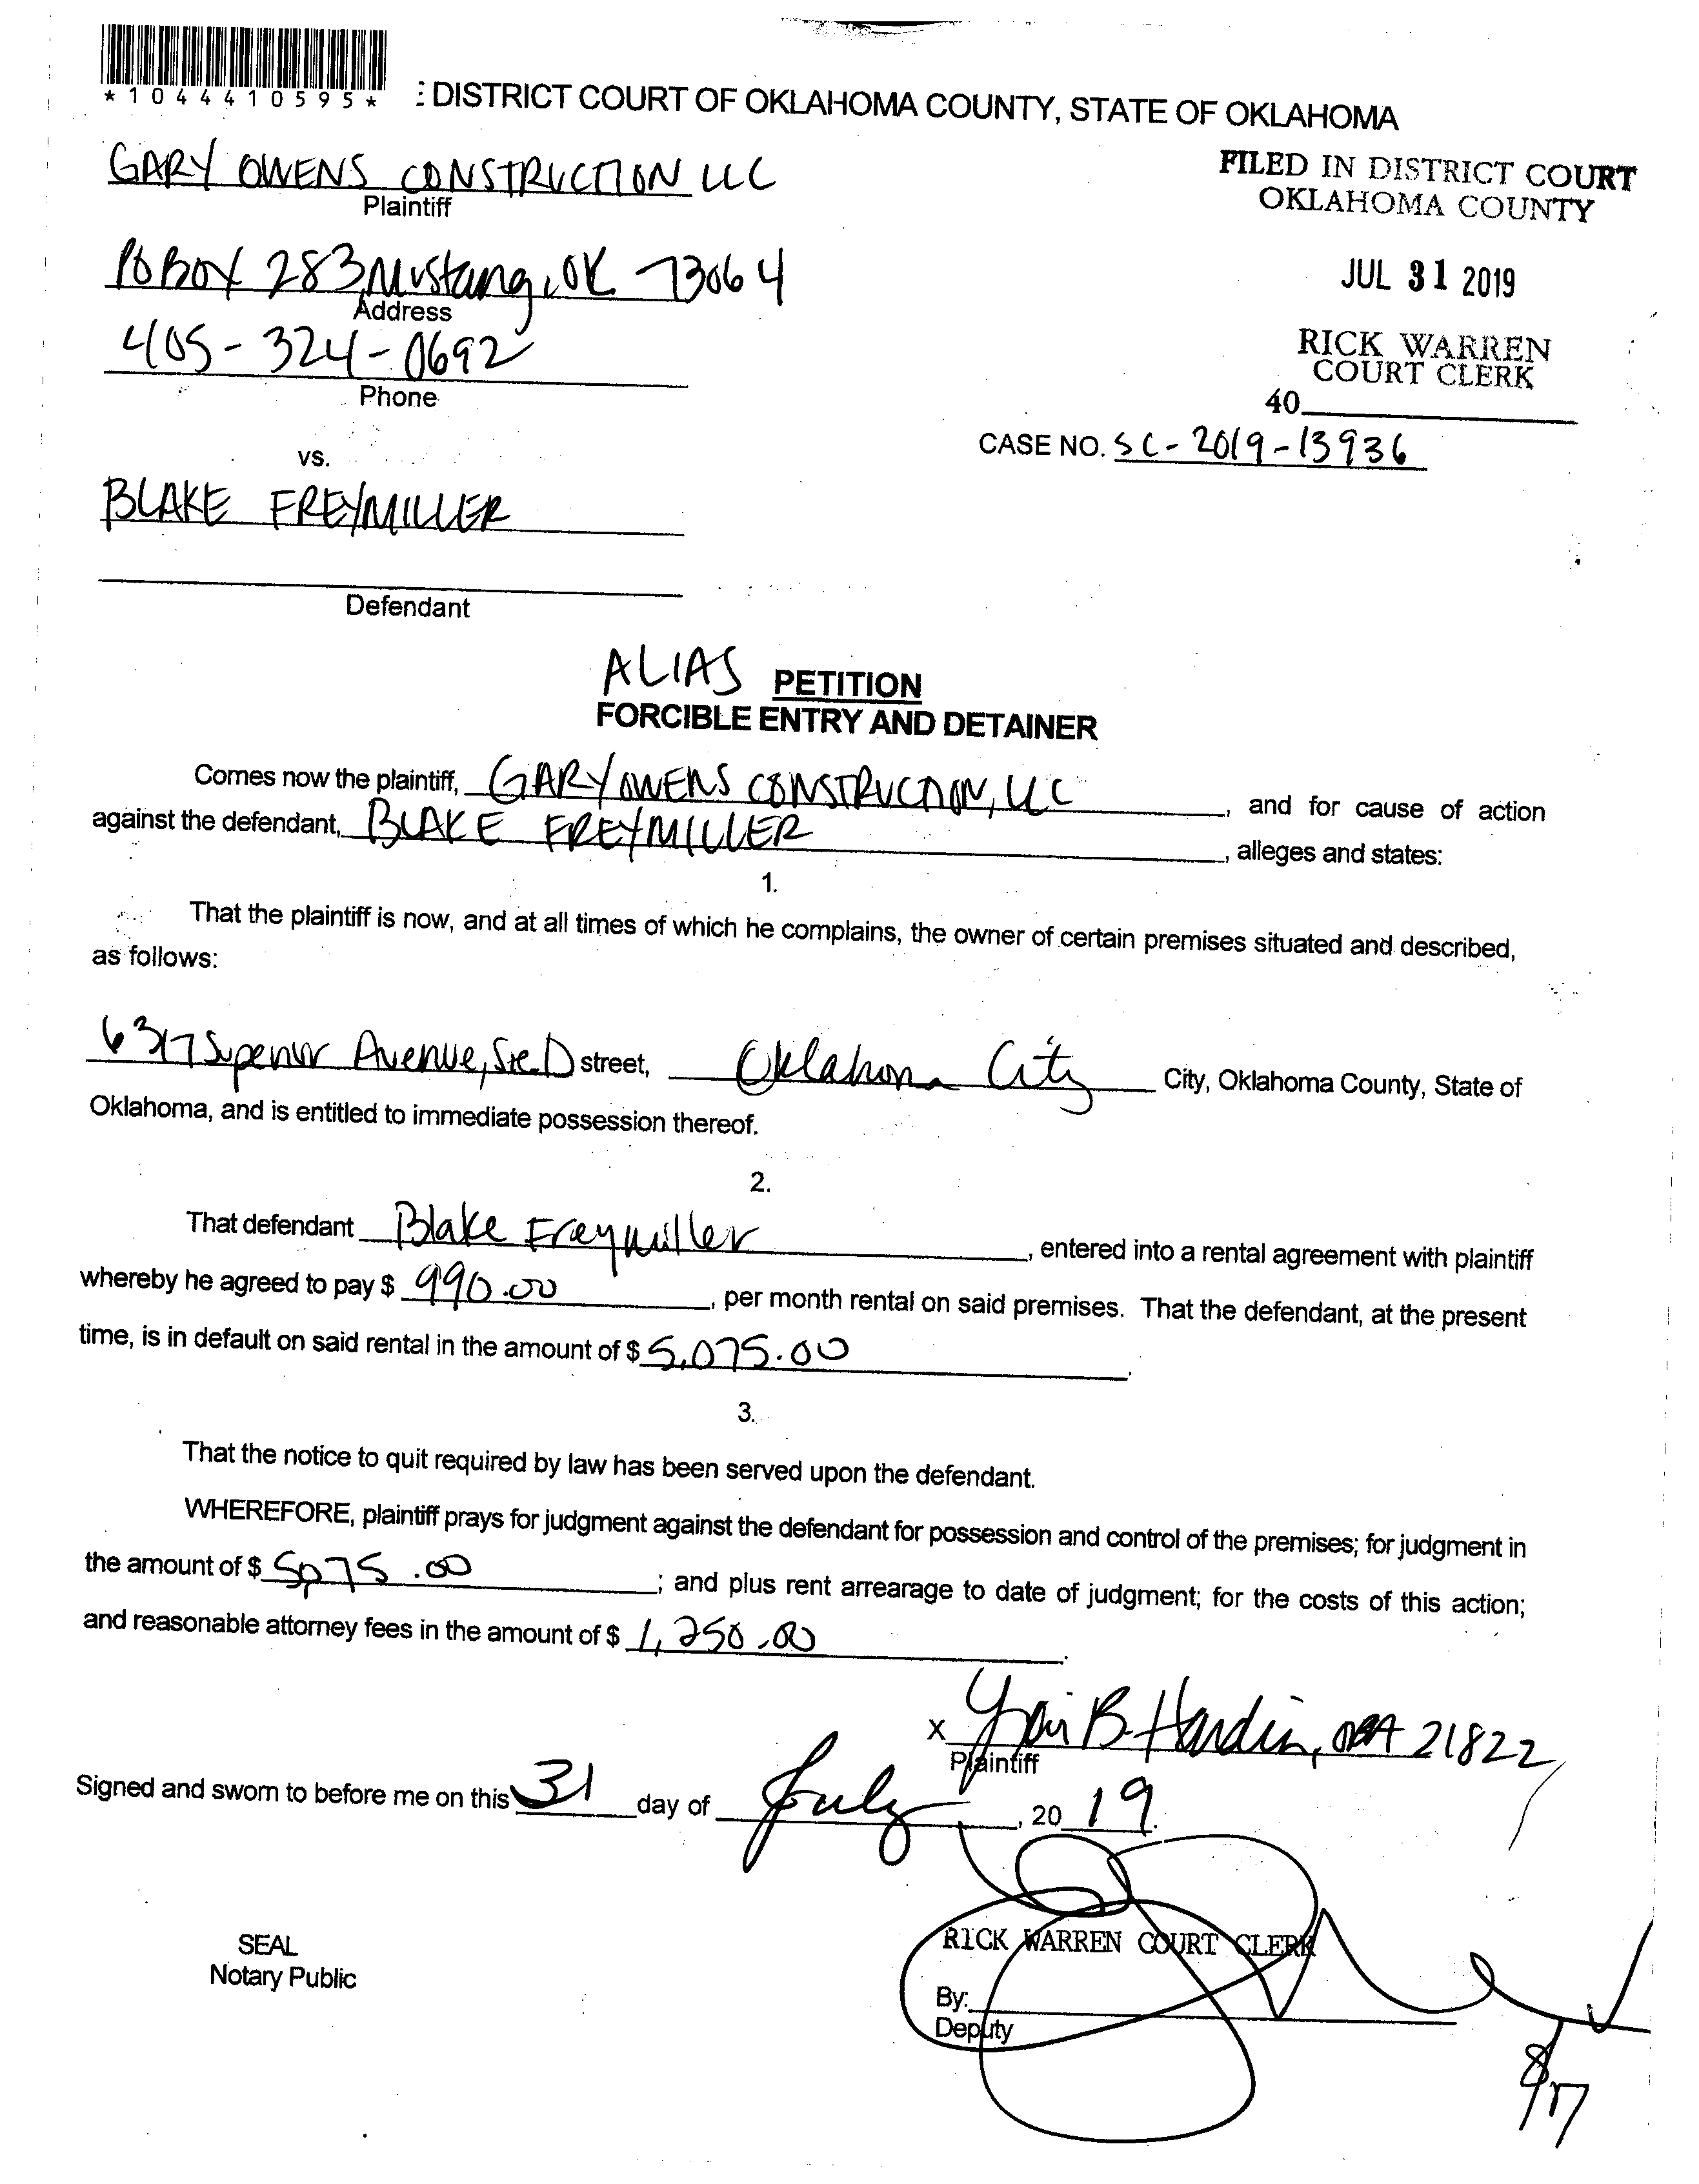 *1044410595*
: DISTRICT COURT OF OKLAHOMA COUNTY, STATE OF OKLAHOMA
GARY OWENS CONSTRUCTION LLC
Plaintiff
FILED IN DISTRICT COURT
OKLAHOMA COUNTY
PO BOX 283, Mustang, OK 73064
Address
JUL 31 2019
405-324-0692
Phone
RICK WARREN
COURT CLERK
40
CASE NO. SC-2019-13936
vs.
BLAKE FREYMILLER
Defendant
ALIAS PETITION
FORCIBLE ENTRY AND DETAINER
Comes now the plaintiff, GARY OWENS CONSTRUCTION, LLC, and for cause of action
against the defendant, BLAKE FREYMILLER, alleges and states:
1.
That the plaintiff is now, and at all times of which he complains, the owner of certain premises situated and described,
as follows:
6317 Superior Avenue, Ste. D street, Oklahoma City City, Oklahoma County, State of
Oklahoma, and is entitled to immediate possession thereof.
2.
That defendant Blake Freymiller, entered into a rental agreement with plaintiff
whereby he agreed to pay $ 990.00, per month rental on said premises. That the defendant, at the present
time, is in default on said rental in the amount of $ 5,075.00.
3.
That the notice to quit required by law has been served upon the defendant.
WHEREFORE, plaintiff prays for judgment against the defendant for possession and control of the premises; for judgment in
the amount of $ 5,075.00; and plus rent arrearage to date of judgment; for the costs of this action;
and reasonable attorney fees in the amount of $ 1,250.00.
x B. Hardin, OBA 21822
Plaintiff
Signed and sworn to before me on this 31 day of July, 2019.
SEAL
Notary Public
RICK WARREN COURT CLERK
By:
Deputy
8/17